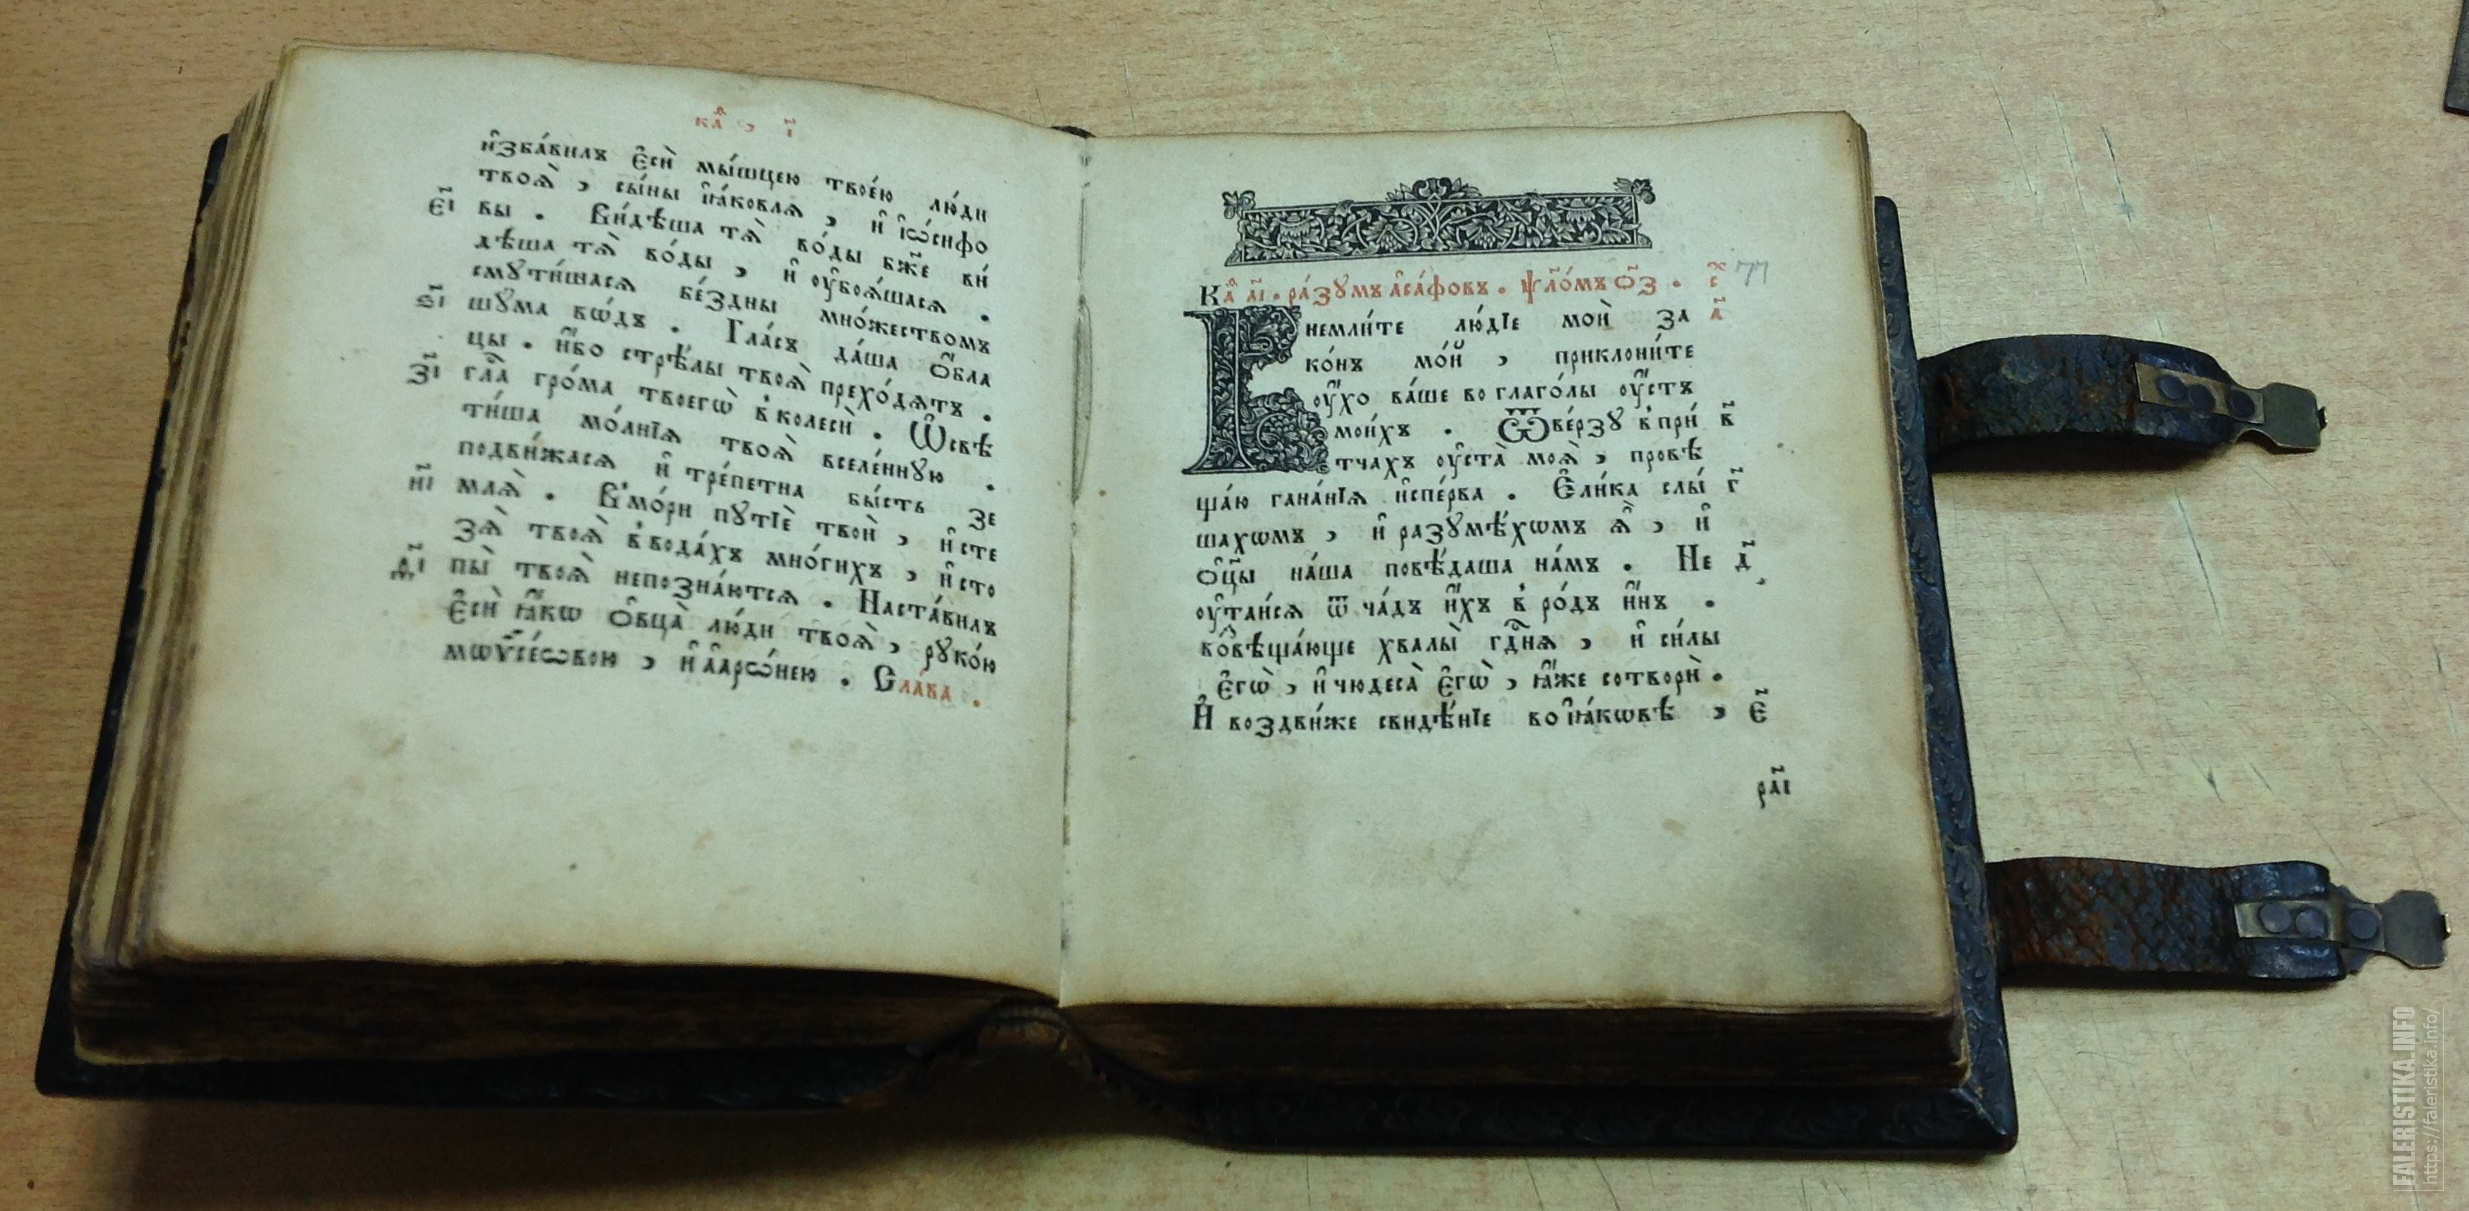 каⷴ҇ , і҃
и҆зба́вилъ є҆сѝ мы́шцею твое́ю лю́ди
твоѧ҄ , сы́ны і҆а́ковлѧ , и҆ і҆ѡ́сифо
є҃і вы . Ви́дѣша тѧ̀ во́ды бж҃е ви́
дѣша тѧ̀ во́ды , и҆ ᲂу҆боѧ́шасѧ .
смꙋти́шасѧ бе́здны мно́жествомъ
ѕ҃і шꙋ́ма во́дъ . Гла́съ да́ша ѻ҆́бла
цы . и҆́бо стрѣ́лы твоѧ̀ прехо́дѧтъ .
з҃і гла҃ гро́ма твоегѡ̀ в̾колесѝ . Ѡ҆свѣ
ти́ша мо́лнїѧ твоѧ̀ вселе́ннꙋю .
подви́жасѧ и҆ тре́петна бы́сть зе
и҃і млѧ̀ . В̾мо́ри пꙋтїѐ твоѝ , и҆ сте
зѧ̀ твоѧ̀ в̾вода́хъ мно́гихъ , и҆ сто
д҃і пы̀ твоѧ̀ непозна́ютсѧ . Наста́вилъ
є҆сѝ ꙗ҆́кѡ ѻ҆вца̀ лю́ди твоѧ̀ , рꙋко́ю
мѡѷсе́ѡвою , и҆ а҆арѡ́нею . Сла́ва .
Каⷴ҇ а҃і . ра́зꙋмъ а҆са́фовъ . ѱало́мъ ѻ҃з . с҃ 77
Внемли́те лю́дїе моѝ за а҃
ко́нъ мо́й , приклони́те
ᲂу҆́хо ва́ше во глаго́лы ᲂу҆́стъ
мои́хъ . Ѿве́рзꙋ в̾при́ в҃
тчахъ ᲂу҆ста̀ моѧ̀ , провѣ
ща́ю гана́нїѧ и҆спе́рва . Є҆ли́ка слы́ г҃
шахѡмъ , и҆ разꙋмѣ́хѡмъ ѧ҆̀ , и҆
ѻ҆ц҃ы на́ша повѣ́даша на́мъ . Не д҃
ᲂу҆таи́сѧ ѿ ча́дъ и҆́хъ в̾ ро́дъ и҆́нъ .
во́вѣща́юще хвалы̀ гдⷭ҇нѧ , и҆ си́лы
є҆гѡ̀ , и҆ чюдеса̀ є҆гѡ̀ , ꙗ҆́же сотворѝ .
И҆ воздви́же свидѣ́нїе во і҆а́кѡвѣ , є҃
ра҃і
FALERISTIKA.INFO
https://faleristika.info/